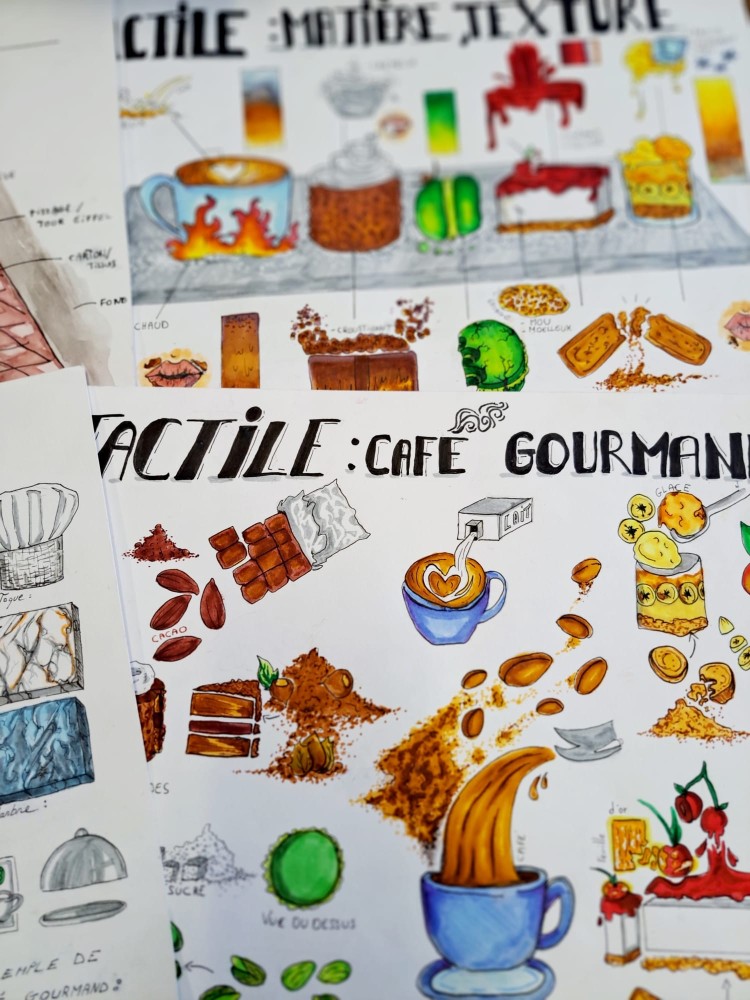 CTILE : MATIÈRE, TEXTURE
TOUR EIFFEL
CARTON/
TISSUS
FOND
CHAUD
- CROUSTILLANT
- MOU
- MOELLEUX
TACTILE : CAFÉ GOURMAN
GLACE
LAIT
Toque :
CACAO
DES
d'or
feuille
CAFÉ
SUCRE
VUE DU DESSUS
EMPLE DE
GOURMAND :